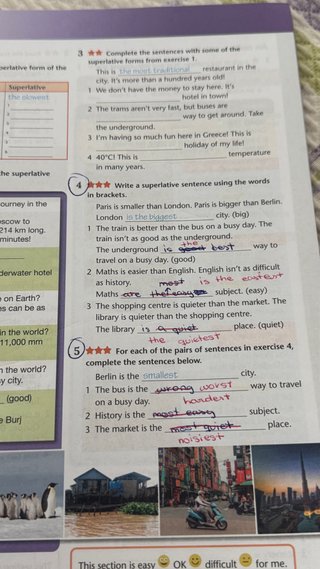 3 ★★ Complete the sentences with some of the
superlative forms from exercise 1.
This is the most traditional restaurant in the
city. It's more than a hundred years old!
1 We don't have the money to stay here. It's
hotel in town!
2 The trams aren't very fast, but buses are
way to get around. Take
the underground.
3 I'm having so much fun here in Greece! This is
holiday of my life!
4 40°C! This is temperature
in many years.
perlative form of the
Superlative
the slowest
the superlative
4 ★★★ Write a superlative sentence using the words
in brackets.
Paris is smaller than London. Paris is bigger than Berlin.
London is the biggest city. (big)
1 The train is better than the bus on a busy day. The
train isn't as good as the underground.
the
The underground is good best way to
travel on a busy day. (good)
2 Maths is easier than English. English isn't as difficult
as history. most is the easiest
Maths are the easy subject. (easy)
3 The shopping centre is quieter than the market. The
library is quieter than the shopping centre.
The library is a quiet place. (quiet)
the quietest
5 ★★★ For each of the pairs of sentences in exercise 4,
complete the sentences below.
Berlin is the smallest city.
1 The bus is the wrong worst way to travel
on a busy day. hardest
2 History is the most easy subject.
3 The market is the most quiet place.
noisiest
ourney in the
scow to
214 km long.
minutes!
derwater hotel
e on Earth?
es can be as
in the world?
11,000 mm
n the world?
y city.
(good)
e Burj
This section is easy OK difficult for me.